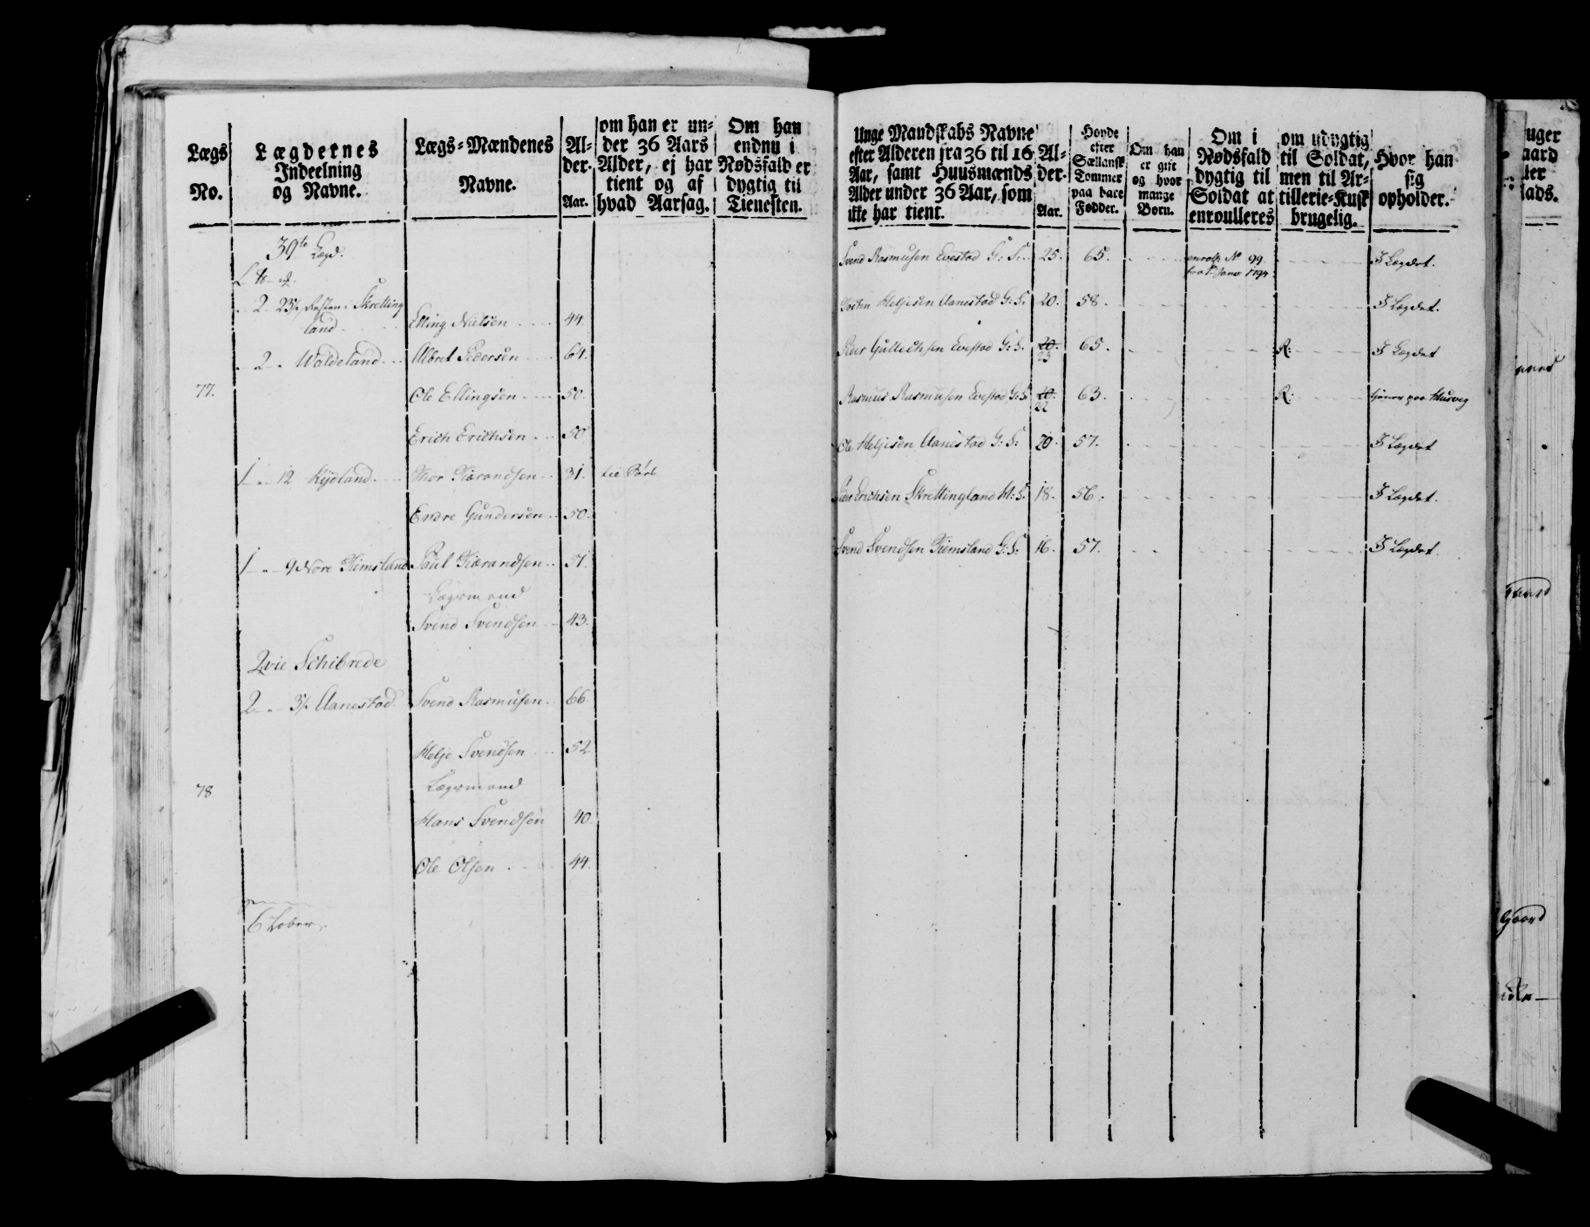 Lægs No.
Lægdernes Indeelning og Navne.
Lægs-Mændenes Navne.
Al-der. Aar.
om han er un-
der 36 Aars
Alder, ej har
tient og af
hvad Aarsag.
Om han
endnu i
Nødsfald er
dygtig til
Tienesten.
39te Lægd.
2 - Skrettingland
Elling Nielsen 44.
2 - Woldeland Albret Pedersen 64.
77. Ole Ellingsen 50.
Erich Erichsen 50
1 - 12 Kydland Thor Tarandsen 31.
Endre Gundersen 50.
1 - 9 Nore Kimsland Poul Tarandsen 51.
Lægsmand
Svend Svendsen 43.
Qvie Schibrede
2 - 3/4 Aanestad Svend Rasmusen 66.
Helje Svendsen 52
78 Lægsmand
Hans Svendsen 40.
Ole Olsen 44.
6 Løber
Unge Mandskabs Navne
efter Alderen fra 36 til 16
Aar, samt Huusmænds
Alder under 36 Aar, som
ikke har tient.
Al-der. Aar.
Høyde
efter
Sællansk
Tommer
paa bare
Fødder.
Om han
er gift
og hvor
mange
Børn.
Om i
Nødsfald
dygtig til
Soldat at
enroulleres
om udygtig
til Soldat,
men til Ar-
tillerie-Kusk
brugelig.
Hvor han
sig
opholder.
Svend Rasmusen Evestad G: S: 25. 65. No 99 1794. I Lægdet.
Helgesen Aanestad G: S. 20. 58. I Lægdet.
Peer Gullechsen Evestad G: S. 20. 23 65. R: I Lægdet
Rasmus Rasmusen Evestad G: S 20. 22 63. R: tjener paa Husveg
Ole Heljesen Aanestad G: S: 20. 57. I Lægdet
Erichsen Skrettingland H: S. 18. 56. I Lægdet.
Svend Svendsen Kimsland G: S. 16. 57. I Lægdet